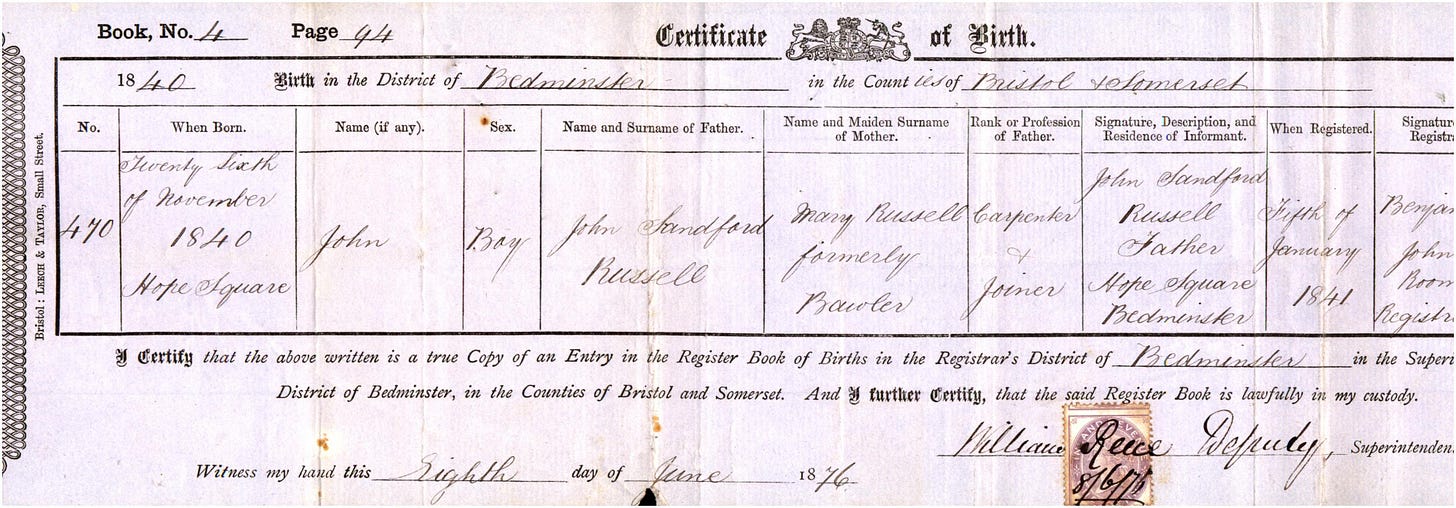 Book, No. 4 Page 94 Certificate of Birth.
1840 Birth in the District of Bedminster in the Counties of Bristol & Somerset
No. When Born. Name (if any). Sex. Name and Surname of Father. Name and Maiden Surname of Mother. Rank or Profession of Father. Signature, Description, and Residence of Informant. When Registered. Signature Registra
470
Twenty Sixth
of November
1840
Hope Square
John
Boy
John Sandford
Russell
Mary Russell
formerly
Bawler
Carpenter
&
Joiner
John Sandford
Russell
Father
Hope Square
Bedminster
Fifth of
January
1841
Benjam
John
Room
Registra
Bristol: LEECH & TAYLOR, Small Street.
I Certify that the above written is a true Copy of an Entry in the Register Book of Births in the Registrar's District of Bedminster in the Superi
District of Bedminster, in the Counties of Bristol and Somerset. And I further Certify, that the said Register Book is lawfully in my custody.
William Deputy, Superintenden
Witness my hand this Eighth day of June 1876
8/6/76